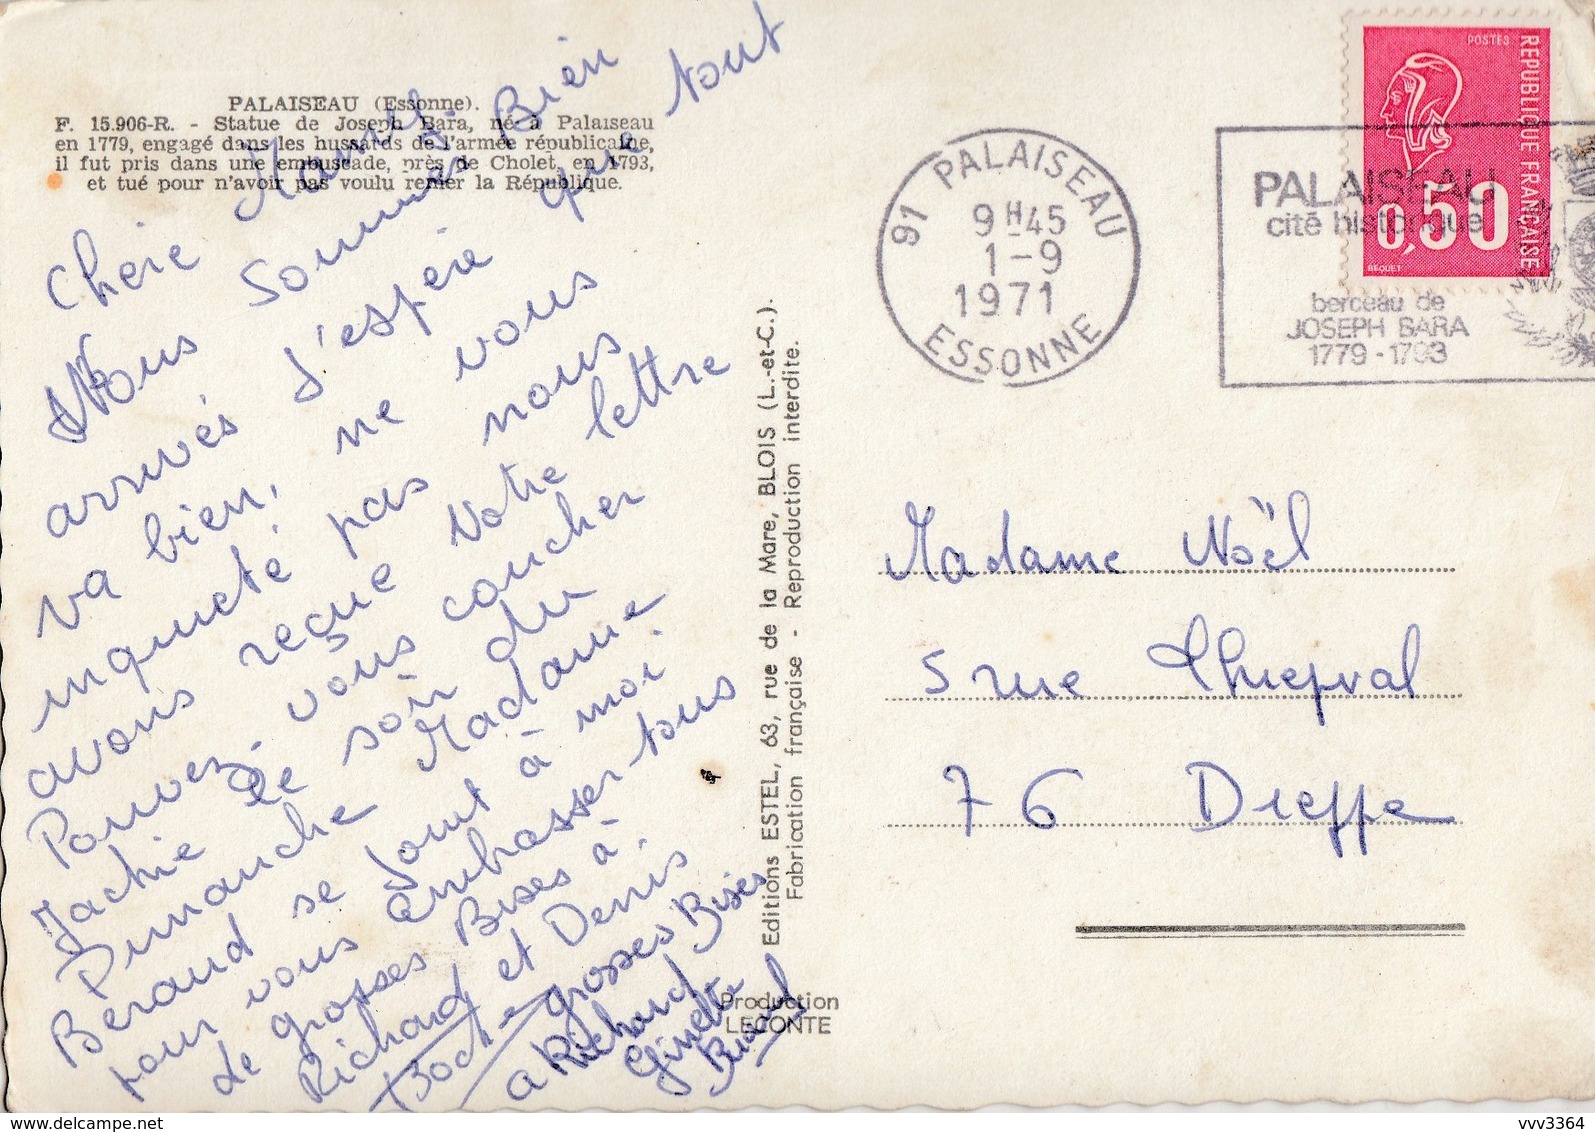 PALAISEAU (Essonne).
F. 15.906-R. - Statue de Joseph Bara, né à Palaiseau
en 1779, engagé dans les hussards de l'armée républicaine,
il fut pris dans une embuscade, près de Cholet, en 1793,
et tué pour n'avoir pas voulu renier la République.
Chère
Nous sommes Bien
arrivés J'espère que tout
va bien, ne vous
inquieté pas nous
avons reçue Votre lettre
Pouvez-vous coucher
Jackie le soir du
Dimanche Madame
Béraud se Joint à moi
pour vous embrasser tous
de grosses Bises à
Richard et Denis
grosses Bises
a Richard
Ginette
Editions ESTEL, 63, rue de la Mare, BLOIS (L.-et-C.).
Fabrication française - Reproduction interdite.
Production
LECONTE
91 PALAISEAU
9H45
1-9
1971
ESSONNE
PALAISEAU
cité historique
berceau de
JOSEPH BARA
1779-1793
POSTES
REPUBLIQUE FRANÇAISE
0,50
BEQUET
Madame Noël
5 rue Thiepval
76 Dieppe
vvv3364